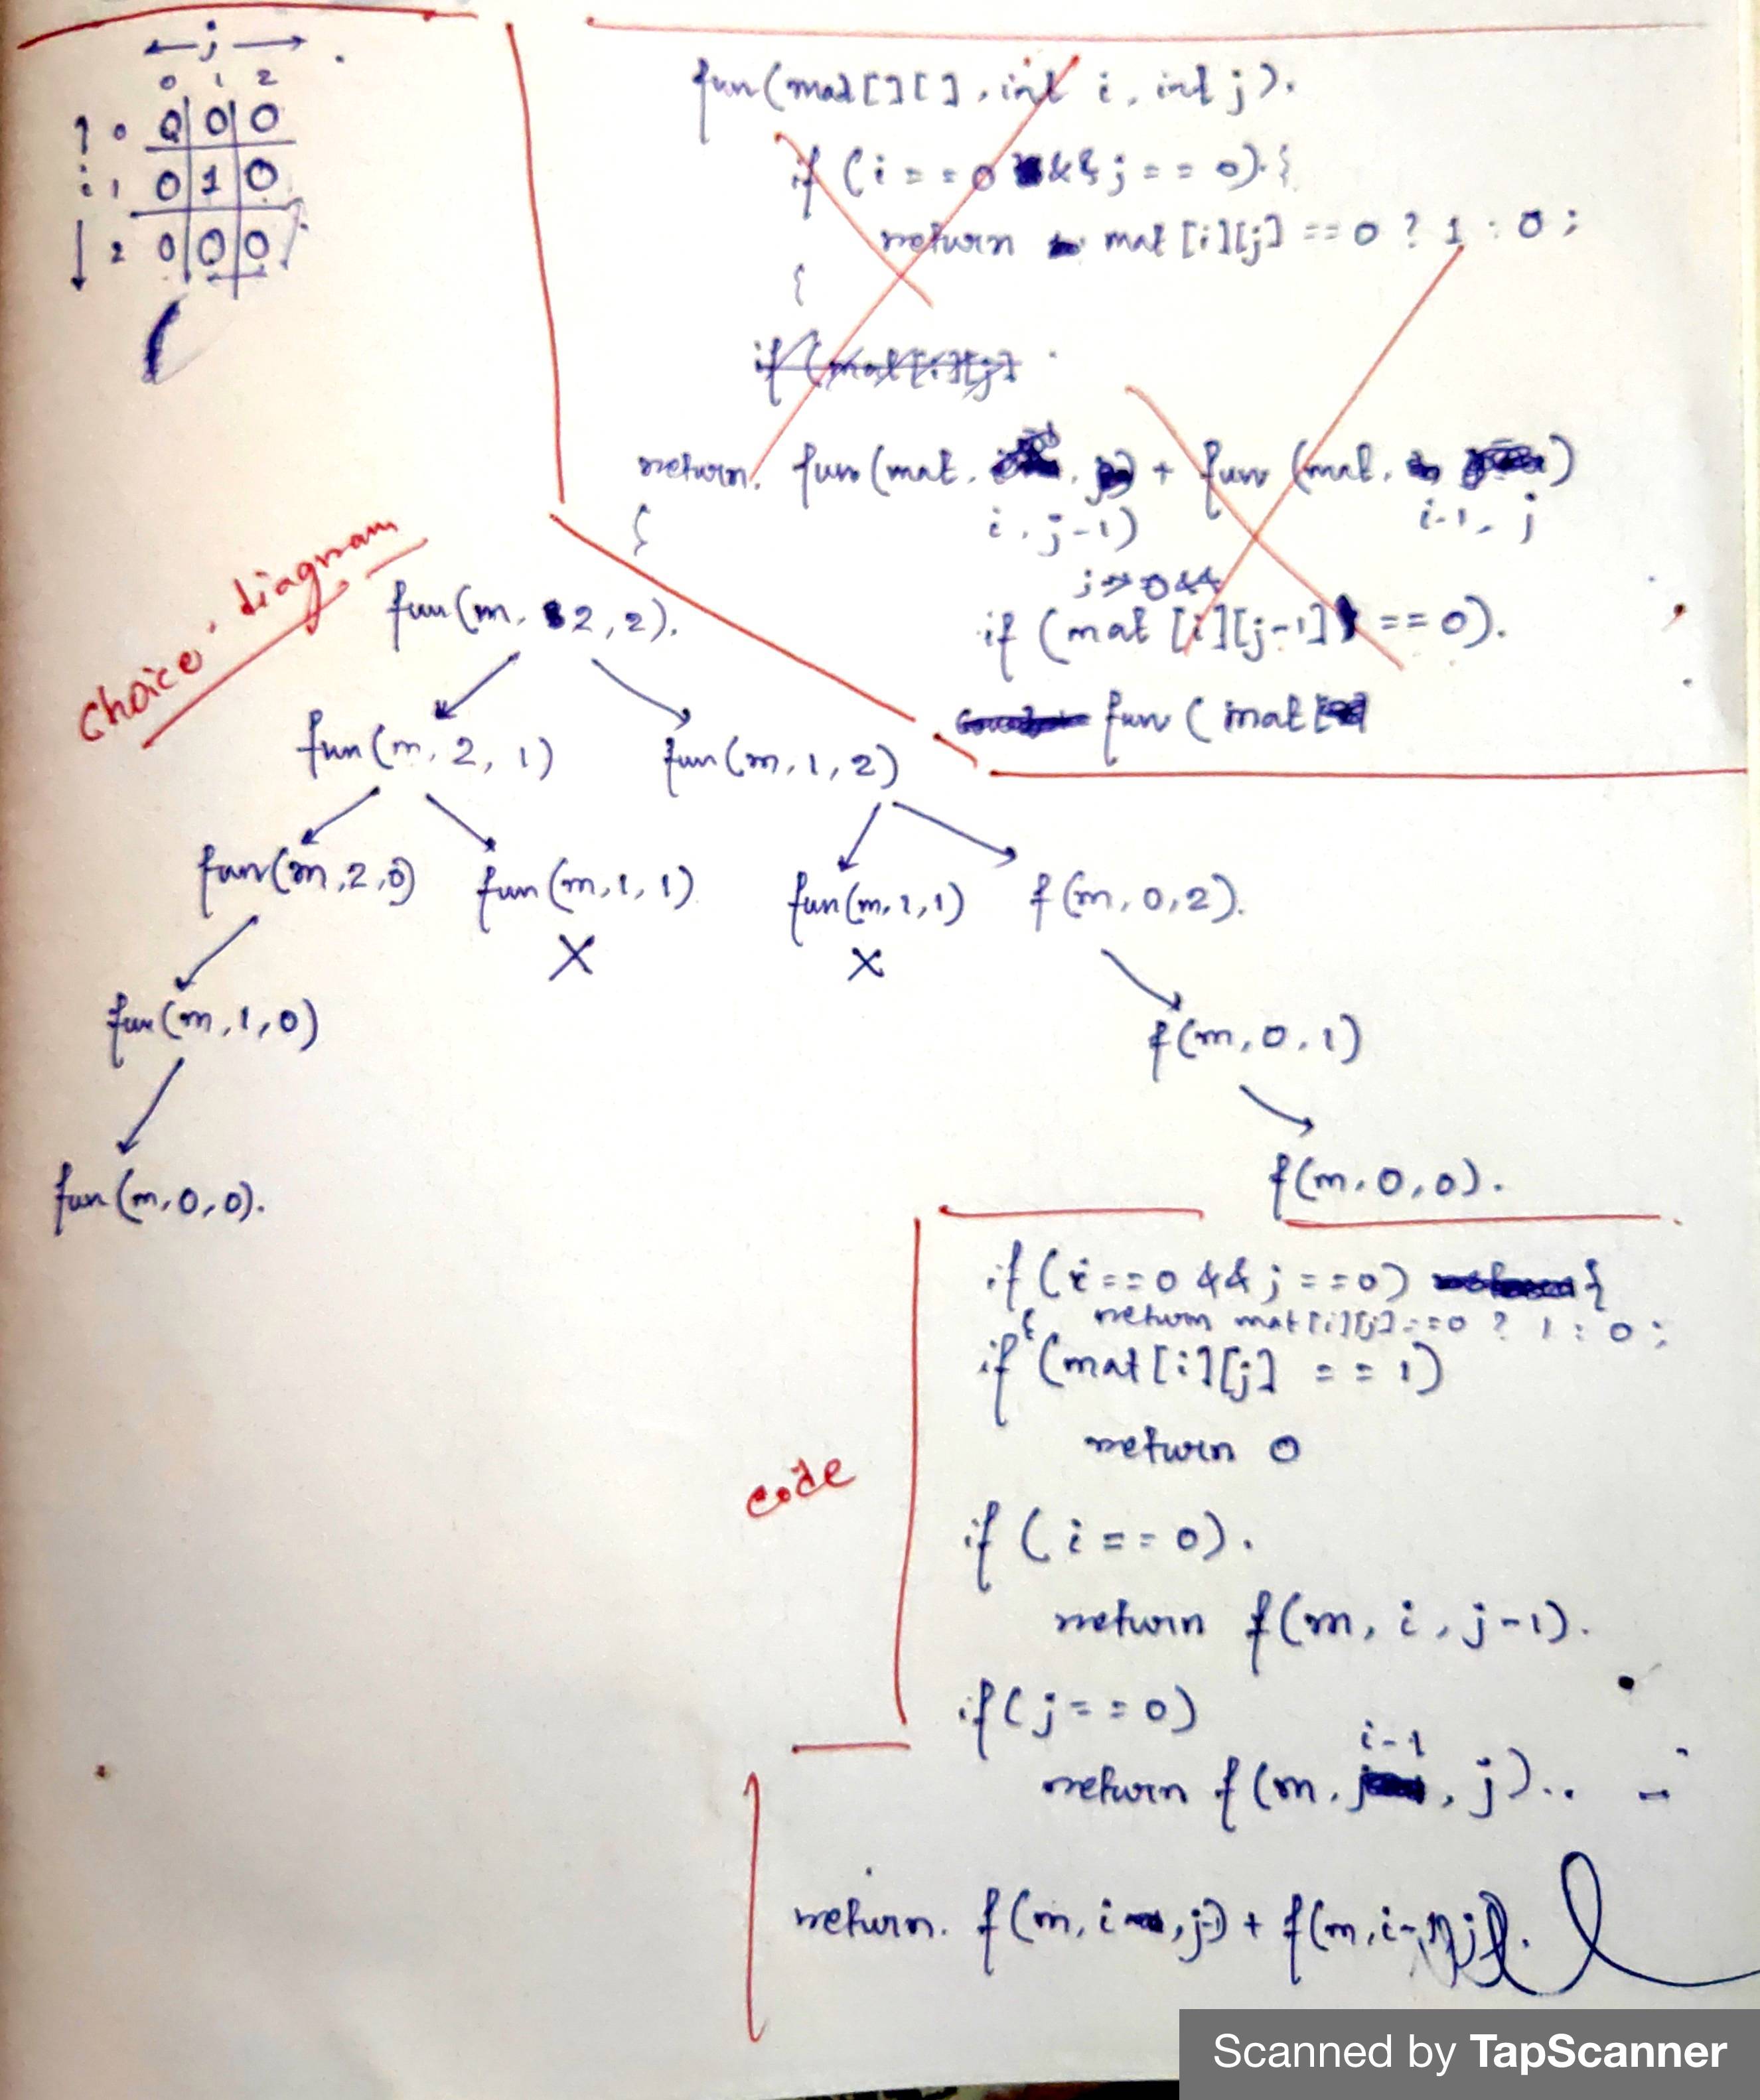 j
0 1 2
0 0 0 0
i 1 0 1 0
2 0 0 0
fun(mat[][], int i, int j).
if (i == 0 && j == 0).{
return mat[i][j] == 0 ? 1 : 0;
}
if (mat[i][j]
return. fun(mat, , ) + fun (mat, )
i, j-1) i-1, j
}
j > 0 &&
if (mat [i][j-1] == 0).
fun ( mat
Choice diagram
fun(m, 2,2).
fun(m, 2, 1) fun(m,1,2)
fun(m,2,0) fun(m,1,1) fun(m,1,1) f(m,0,2).
X X
fun(m,1,0) f(m,0,1)
fun(m,0,0). f(m,0,0).
code
if (i==0 && j ==0) {
return mat[i][j]==0 ? 1 : 0;
}
if (mat[i][j] == 1)
return 0
if (i == 0).
return f(m, i, j-1).
if(j==0)
i-1
return f(m, , j)..
return. f(m, i , j-1) + f(m,i-1,j).
Scanned by TapScanner